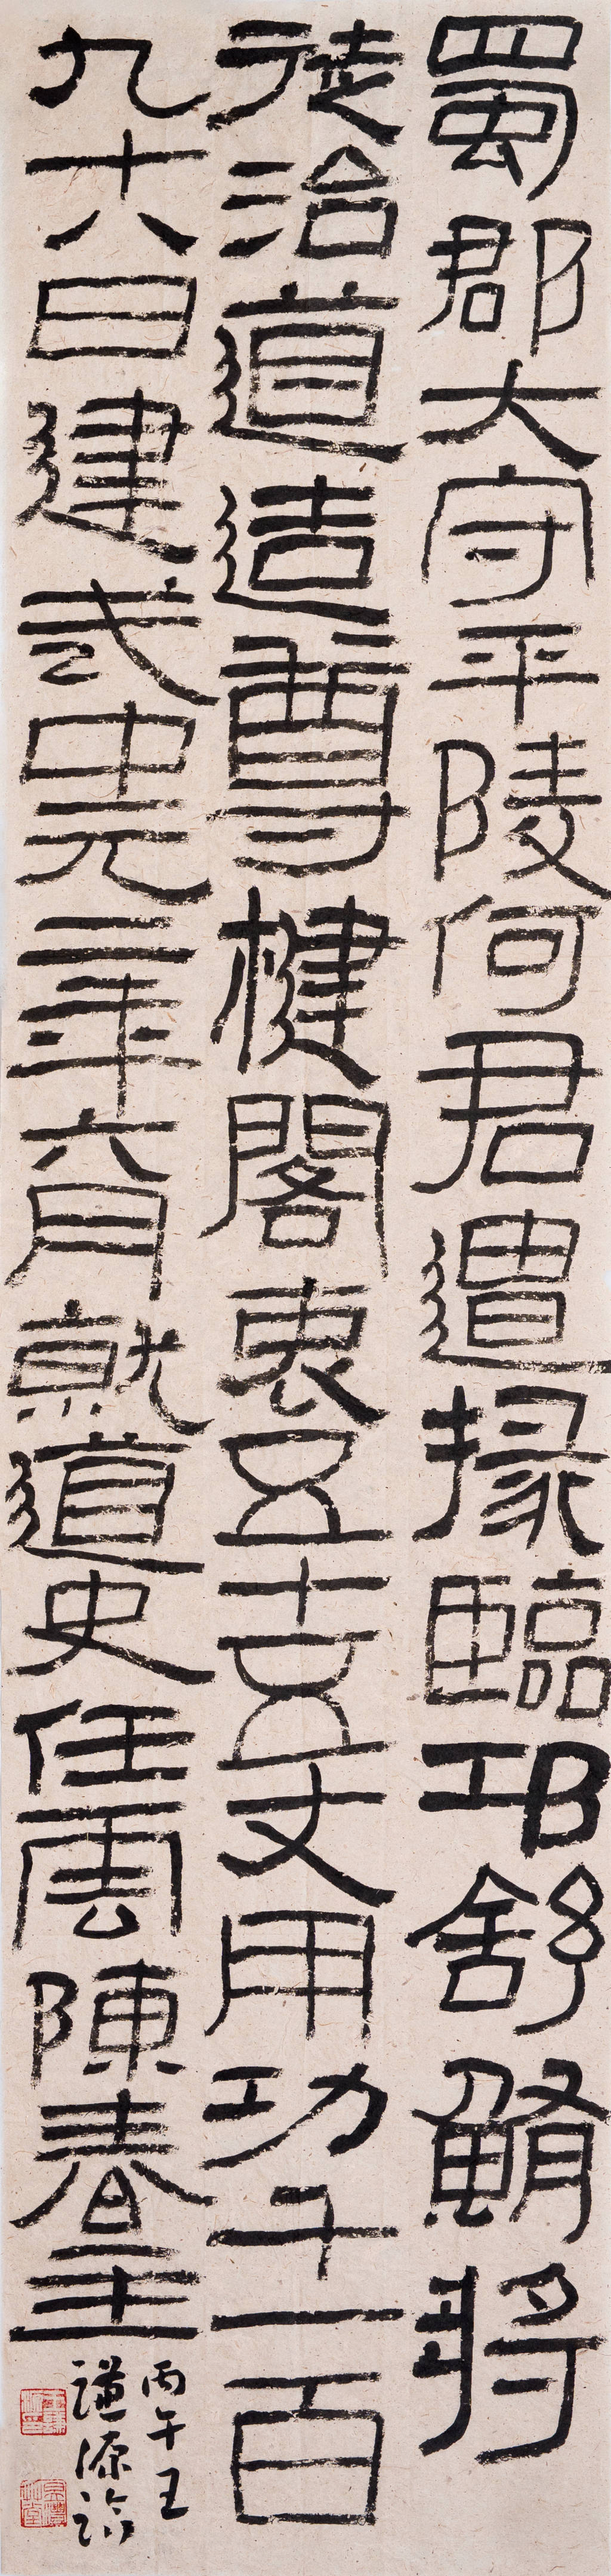 蜀郡大守平陵何君遣掾臨邛舒鮪將
徒治道造尊楗閣袤五十五丈用功千一百
九十八日建武中元二年六月就道史任雲陳春主
丙午王
謙源臨